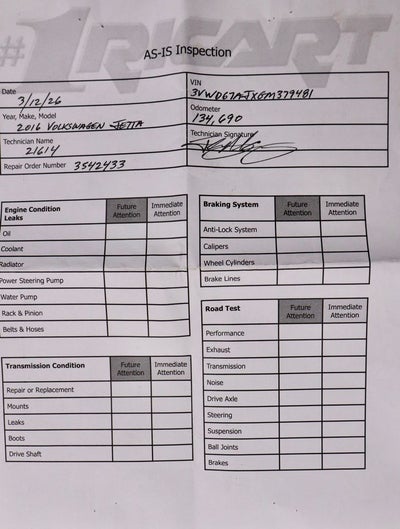 #1 RICART
AS-IS Inspection
Date 3/12/26
VIN 3VWD67AJXGM379481
Year, Make, Model 2016 VOLKSWAGEN JETTA
Odometer 134,690
Technician Name 21614
Technician Signature
Repair Order Number 3542433
Engine Condition Leaks Future Attention Immediate Attention
Oil
Coolant
Radiator
Power Steering Pump
Water Pump
Rack & Pinion
Belts & Hoses
Transmission Condition Future Attention Immediate Attention
Repair or Replacement
Mounts
Leaks
Boots
Drive Shaft
Braking System Future Attention Immediate Attention
Anti-Lock System
Calipers
Wheel Cylinders
Brake Lines
Road Test Future Attention Immediate Attention
Performance
Exhaust
Transmission
Noise
Drive Axle
Steering
Suspension
Ball Joints
Brakes